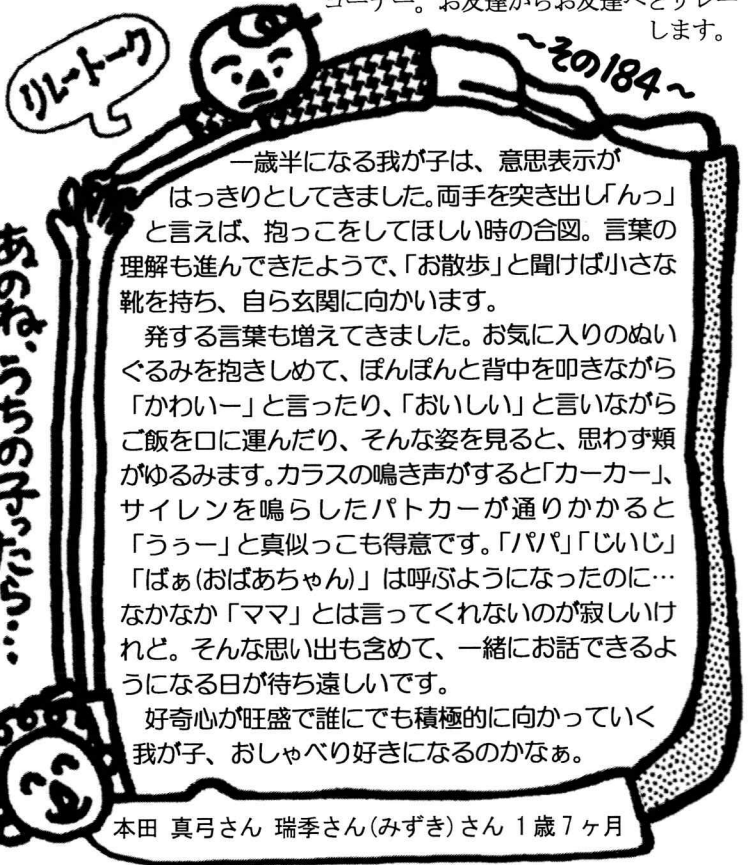 コーナー。お友達からお友達へとリレー
します。
リレートーク
～その184～
あのね、うちの子ったら…
一歳半になる我が子は、意思表示が
はっきりとしてきました。両手を突き出し「んっ」
と言えば、抱っこをしてほしい時の合図。言葉の
理解も進んできたようで、「お散歩」と聞けば小さな
靴を持ち、自ら玄関に向かいます。
発する言葉も増えてきました。お気に入りのぬい
ぐるみを抱きしめて、ぽんぽんと背中を叩きながら
「かわいー」と言ったり、「おいしい」と言いながら
ご飯を口に運んだり、そんな姿を見ると、思わず頬
がゆるみます。カラスの鳴き声がすると「カーカー」、
サイレンを鳴らしたパトカーが通りかかると
「うぅー」と真似っこも得意です。「パパ」「じいじ」
「ばぁ(おばあちゃん)」は呼ぶようになったのに…
なかなか「ママ」とは言ってくれないのが寂しいけ
れど。そんな思い出も含めて、一緒にお話できるよ
うになる日が待ち遠しいです。
好奇心が旺盛で誰にでも積極的に向かっていく
我が子、おしゃべり好きになるのかなぁ。
本田 真弓さん 瑞季さん(みずき)さん 1歳7ヶ月